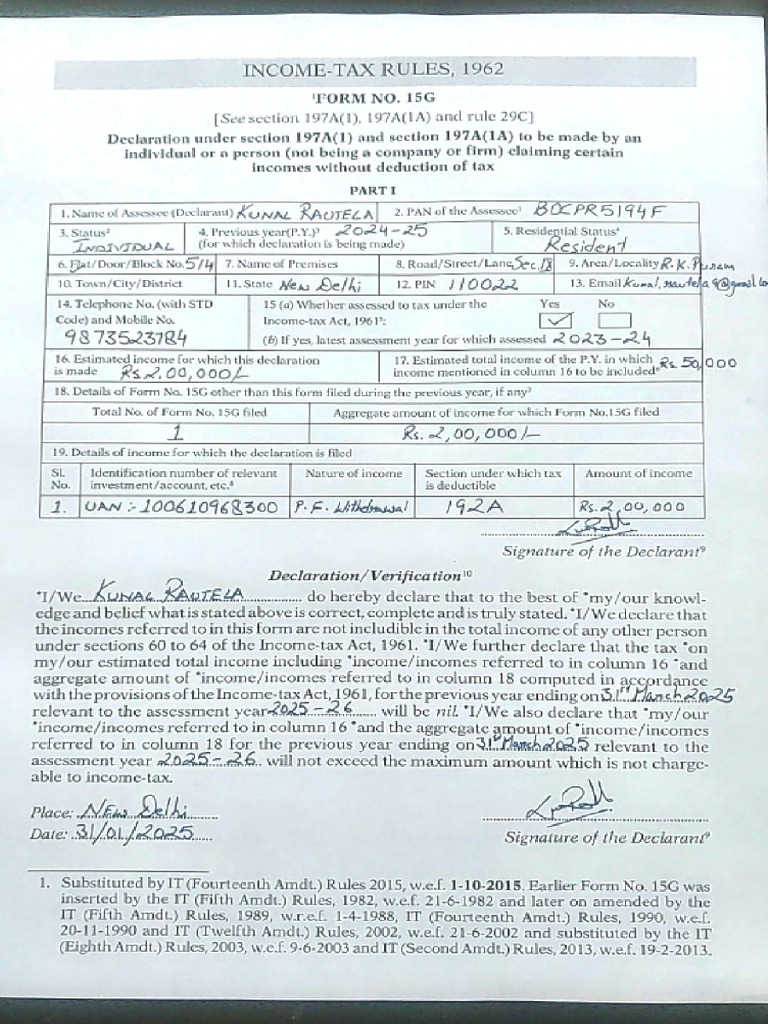 INCOME-TAX RULES, 1962
¹FORM NO. 15G
[See section 197A(1), 197A(1A) and rule 29C]
Declaration under section 197A(1) and section 197A(1A) to be made by an
individual or a person (not being a company or firm) claiming certain
incomes without deduction of tax
PART I
1. Name of Assessee (Declarant) KUNAL RAUTELA 2. PAN of the Assessee¹ BOCPR5194F
3. Status² INDIVIDUAL 4. Previous year(P.Y.)³ 2024-25 (for which declaration is being made) 5. Residential Status⁴ Resident
6. Flat/Door/Block No. 5/4 7. Name of Premises 8. Road/Street/Lane Sec. 13 9. Area/Locality R.K. Puram
10. Town/City/District 11. State New Delhi 12. PIN 110022 13. Email Kunal.rautela9@gmail.co
14. Telephone No. (with STD Code) and Mobile No. 9873523784
15 (a) Whether assessed to tax under the Income-tax Act, 1961⁵: Yes ✓ No
(b) If yes, latest assessment year for which assessed 2023-24
16. Estimated income for which this declaration is made Rs. 2,00,000/-
17. Estimated total income of the P.Y. in which income mentioned in column 16 to be included⁶ Rs. 50,000
18. Details of Form No. 15G other than this form filed during the previous year, if any⁷
Total No. of Form No. 15G filed Aggregate amount of income for which Form No.15G filed
1 Rs. 2,00,000/-
19. Details of income for which the declaration is filed
Sl. No. Identification number of relevant investment/account, etc.⁸ Nature of income Section under which tax is deductible Amount of income
1. UAN :- 100610968300 P.F. Withdrawal 192A Rs. 2,00,000
Signature of the Declarant⁹
Declaration/Verification¹⁰
*I/We KUNAL RAUTELA do hereby declare that to the best of *my/our knowl-
edge and belief what is stated above is correct, complete and is truly stated. *I/We declare that
the incomes referred to in this form are not includible in the total income of any other person
under sections 60 to 64 of the Income-tax Act, 1961. *I/We further declare that the tax *on
my/our estimated total income including *income/incomes referred to in column 16 *and
aggregate amount of *income/incomes referred to in column 18 computed in accordance
with the provisions of the Income-tax Act, 1961, for the previous year ending on 31st March 2025
relevant to the assessment year 2025-26 will be nil. *I/We also declare that *my/our
*income/incomes referred to in column 16 *and the aggregate amount of *income/incomes
referred to in column 18 for the previous year ending on 31st March 2025 relevant to the
assessment year 2025-26 will not exceed the maximum amount which is not charge-
able to income-tax.
Place: NEW Delhi
Date: 31/01/2025
Signature of the Declarant⁹
1. Substituted by IT (Fourteenth Amdt.) Rules 2015, w.e.f. 1-10-2015. Earlier Form No. 15G was
inserted by the IT (Fifth Amdt.) Rules, 1982, w.e.f. 21-6-1982 and later on amended by the
IT (Fifth Amdt.) Rules, 1989, w.r.e.f. 1-4-1988, IT (Fourteenth Amdt.) Rules, 1990, w.e.f.
20-11-1990 and IT (Twelfth Amdt.) Rules, 2002, w.e.f. 21-6-2002 and substituted by the IT
(Eighth Amdt.) Rules, 2003, w.e.f. 9-6-2003 and IT (Second Amdt.) Rules, 2013, w.e.f. 19-2-2013.